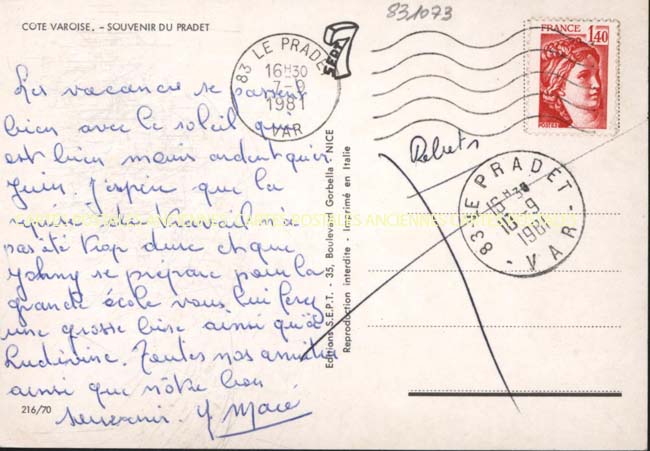 COTE VAROISE. - SOUVENIR DU PRADET
831073
Les vacances se passent
bien avec le soleil qui
est bien moins ardent qu'en
Juin. J'espère que la
reprise du travail n'a
pas été trop dure et que
Johnny se prépare pour la
grande école vous lui ferez
une grosse bise ainsi qu'à
Ludivine. Toutes nos amitiés
ainsi que nôtre bon
souvenir. Y Macé
216/70
Editions S.E.P.T. - 35, Boulevard Gorbella - NICE
Reproduction interdite - Imprimé en Italie
SEPT
83 LE PRADET
16H30
7-9
1981
VAR
FRANCE 1,40
Rebuts
83 LE PRADET
16H30
10-9
1981
- VAR -
CARTES POSTALES ANCIENNES